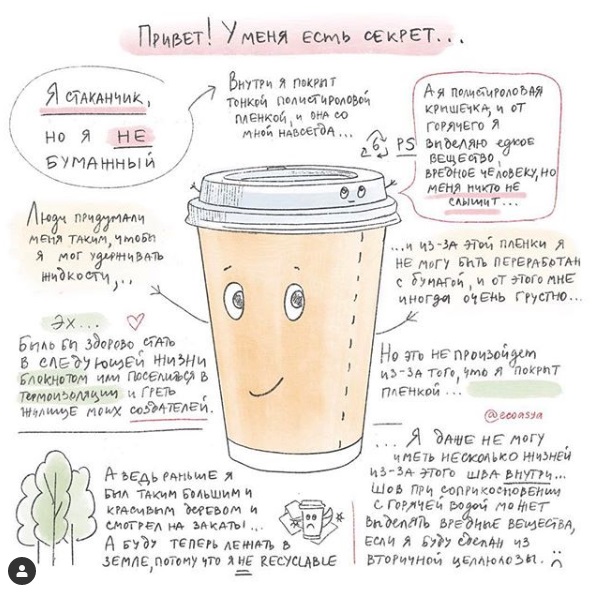 Привет! У меня есть секрет...
Я стаканчик,
но я не
бумажный
Внутри я покрыт
тонкой полистироловой
пленкой, и она со
мной навсегда...
А я полистироловая
крышечка, и от
горячего я
выделяю едкое
вещество,
вредное человеку, но
меня никто не
слышит...
6 PS
Люди придумали
меня таким, чтобы
я мог удерживать
жидкости,..
...и из-за этой пленки я
не могу быть переработан
с бумагой, и от этого мне
иногда очень грустно...
Эх...
Было бы здорово стать
в следующей жизни
блокнотом или поселиться в
термоизоляции и греть
жилище моих создателей.
Но это не произойдет
из-за того, что я покрыт
пленкой...
@ecoasya
... Я даже не могу
иметь несколько жизней
из-за этого шва внутри...
Шов при соприкосновении
с горячей водой может
выделять вредные вещества,
если я буду сделан из
вторичной целлюлозы.
А ведь раньше я
был таким большим и
красивым деревом и
смотрел на закаты...
А буду теперь лежать в
земле, потому что я не recyclable